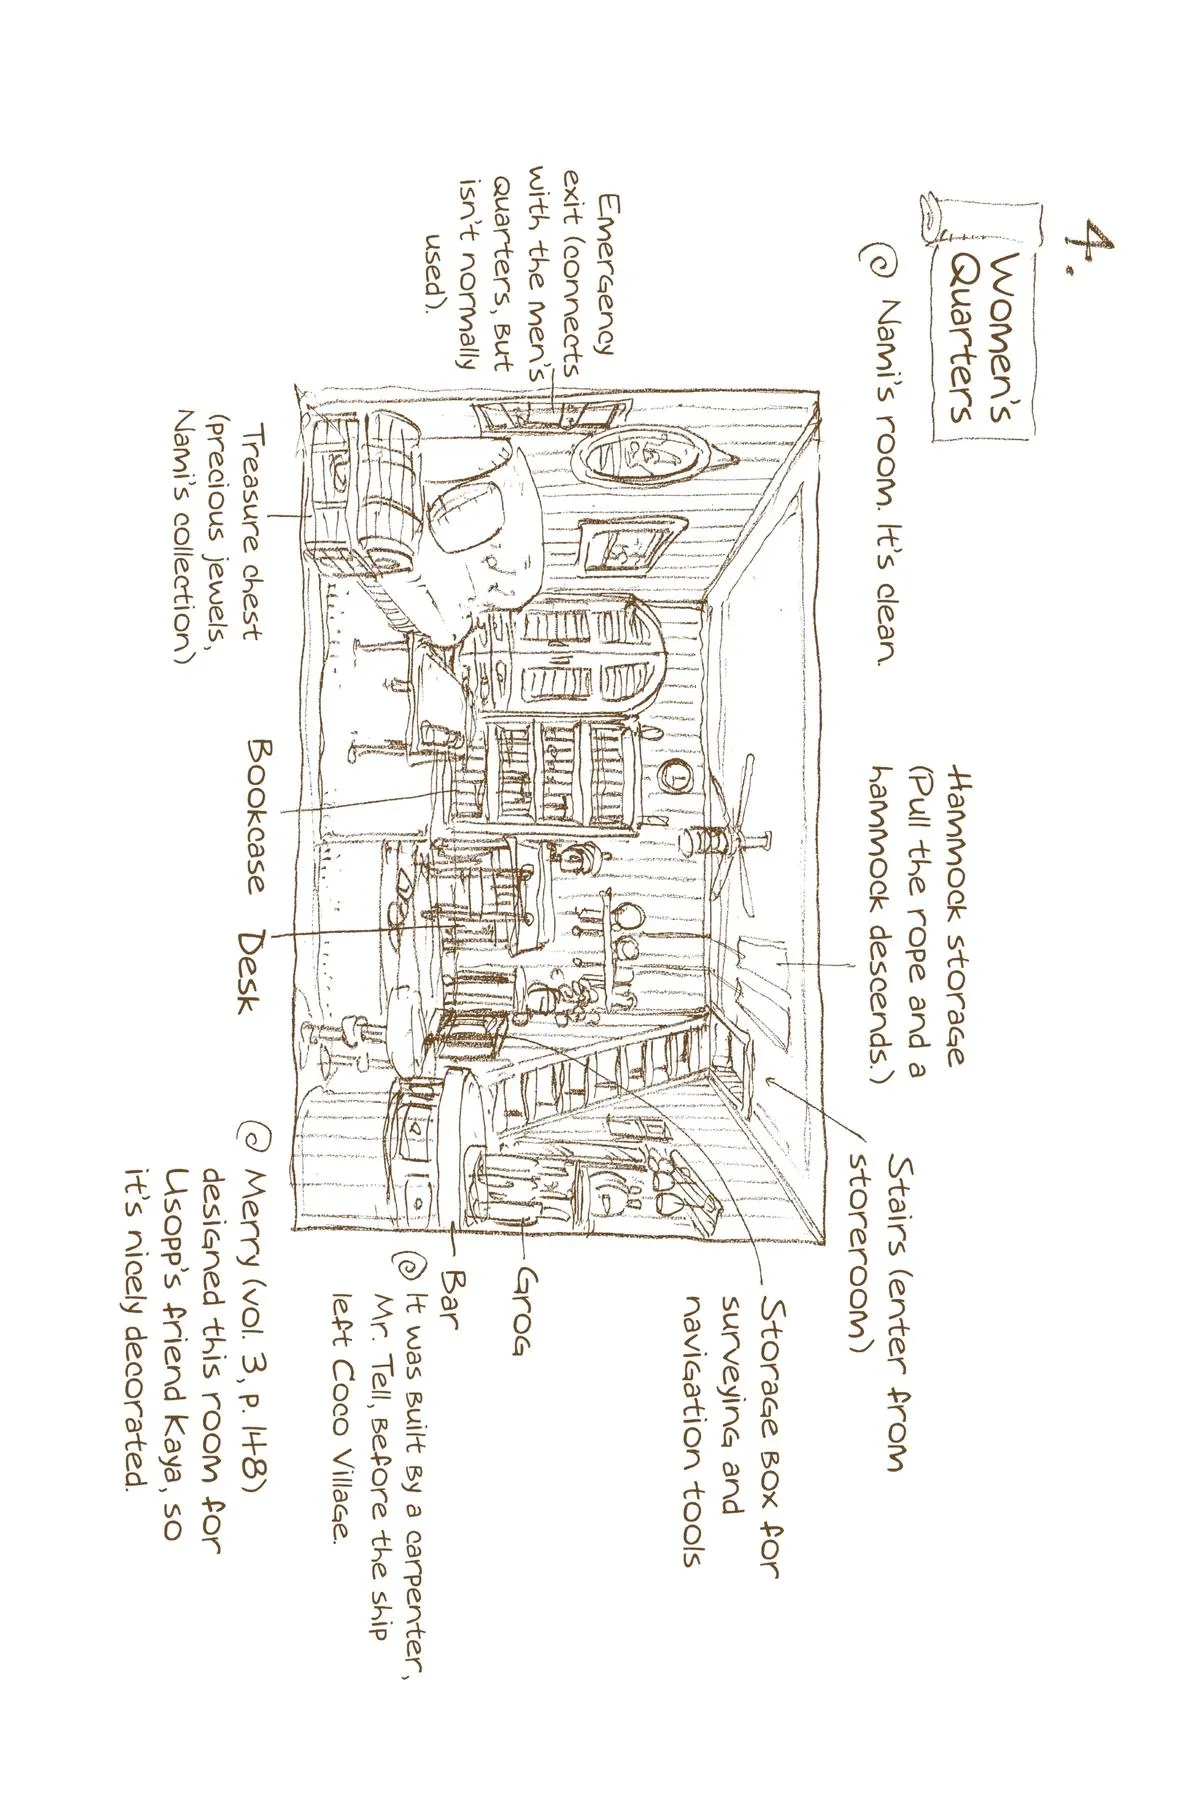 4.
Women's
Quarters
Nami's room. It's clean.
Hammock storage
(Pull the rope and a
hammock descends.)
Stairs (enter from
storeroom)
Emergency
exit (connects
with the men's
quarters, but
isn't normally
used).
Storage box for
surveying and
navigation tools
Grog
Bar
It was built by a carpenter,
Mr. Tell, before the ship
left Coco Village.
Treasure chest
(precious jewels,
Nami's collection)
Bookcase
Desk
Merry (vol. 3, p. 148)
designed this room for
Usopp's friend Kaya, so
it's nicely decorated.